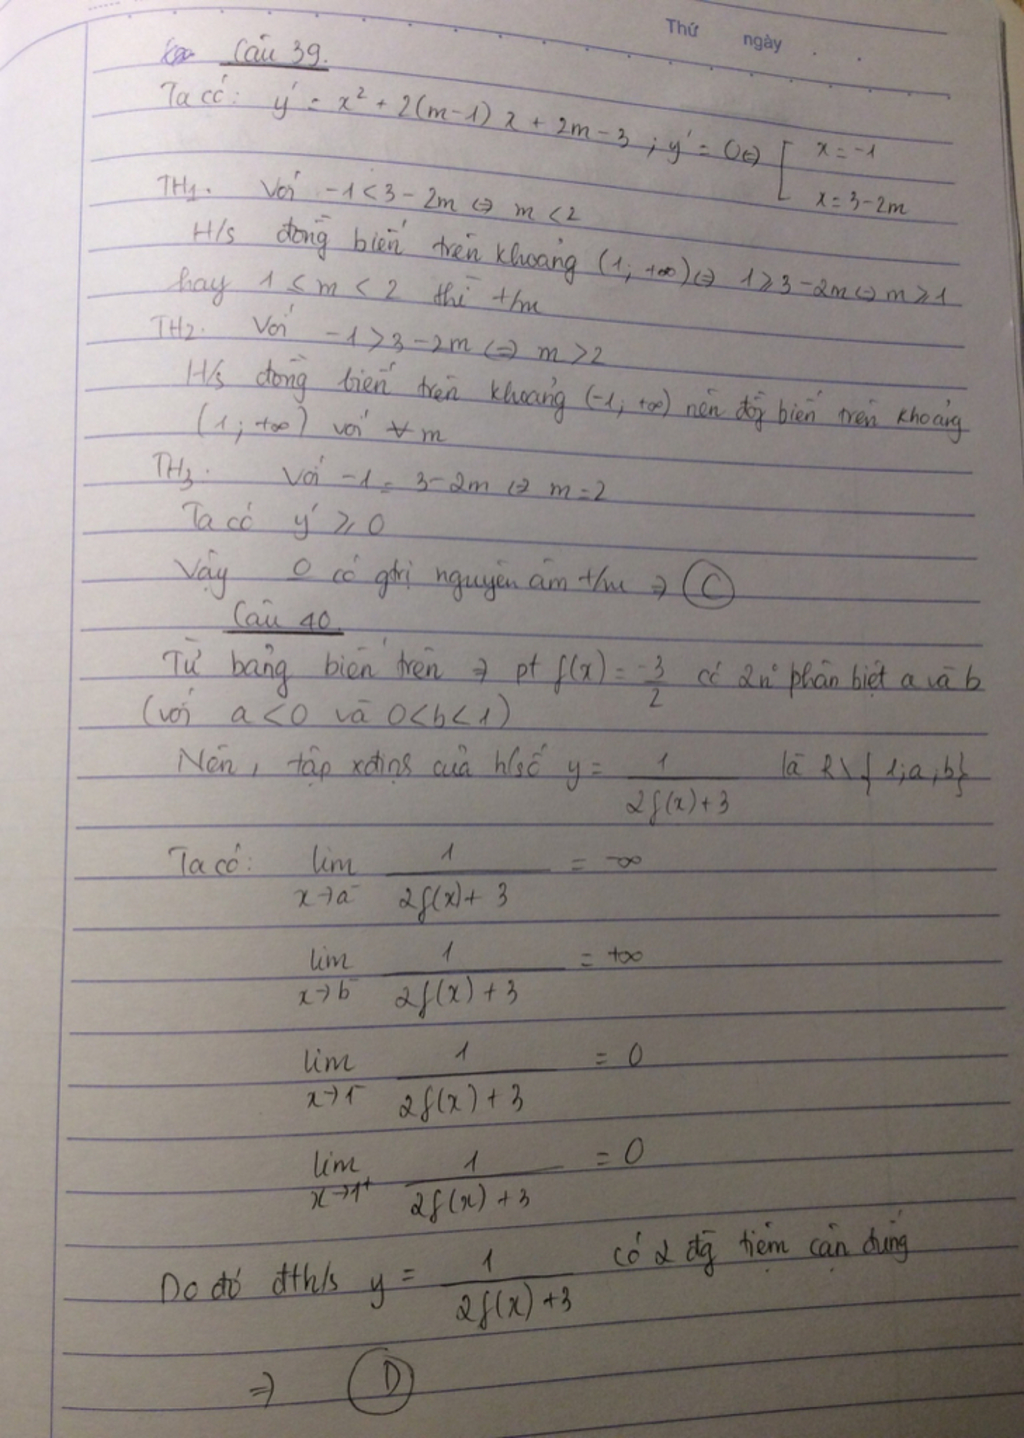 Thứ ngày
Câu 39.
Ta có: y' = x² + 2(m-1)x + 2m-3 ; y' = 0 ⇔ [ x = -1
x = 3-2m
TH1. Với -1 < 3-2m ⇔ m < 2
H/s đồng biến trên khoảng (1; +∞) ⇔ 1 ≥ 3-2m ⇔ m ≥ 1
hay 1 ≤ m < 2 thì t/m
TH2. Với -1 > 3-2m ⇔ m > 2
H/s đồng biến trên khoảng (-1; +∞) nên đg biến trên khoảng
(1; +∞) với ∀m
TH3. Với -1 = 3-2m ⇔ m = 2
Ta có y' ≥ 0
Vậy 0 có gtrị nguyên âm t/m ⇒ C
Câu 40.
Từ bảng biến trên ⇒ pt f(x) = -3/2 có 2n° phân biệt a và b
(với a < 0 và 0 < b < 1)
Nên, tập xđịnh của h/số y = 1/(2f(x)+3) là R\{1;a,b}
Ta có: lim x→a⁻ 1/(2f(x)+3) = -∞
lim x→b⁻ 1/(2f(x)+3) = +∞
lim x→1⁻ 1/(2f(x)+3) = 0
lim x→1⁺ 1/(2f(x)+3) = 0
Do đó đth/s y = 1/(2f(x)+3) có 2 đg tiệm cận đứng
⇒ D